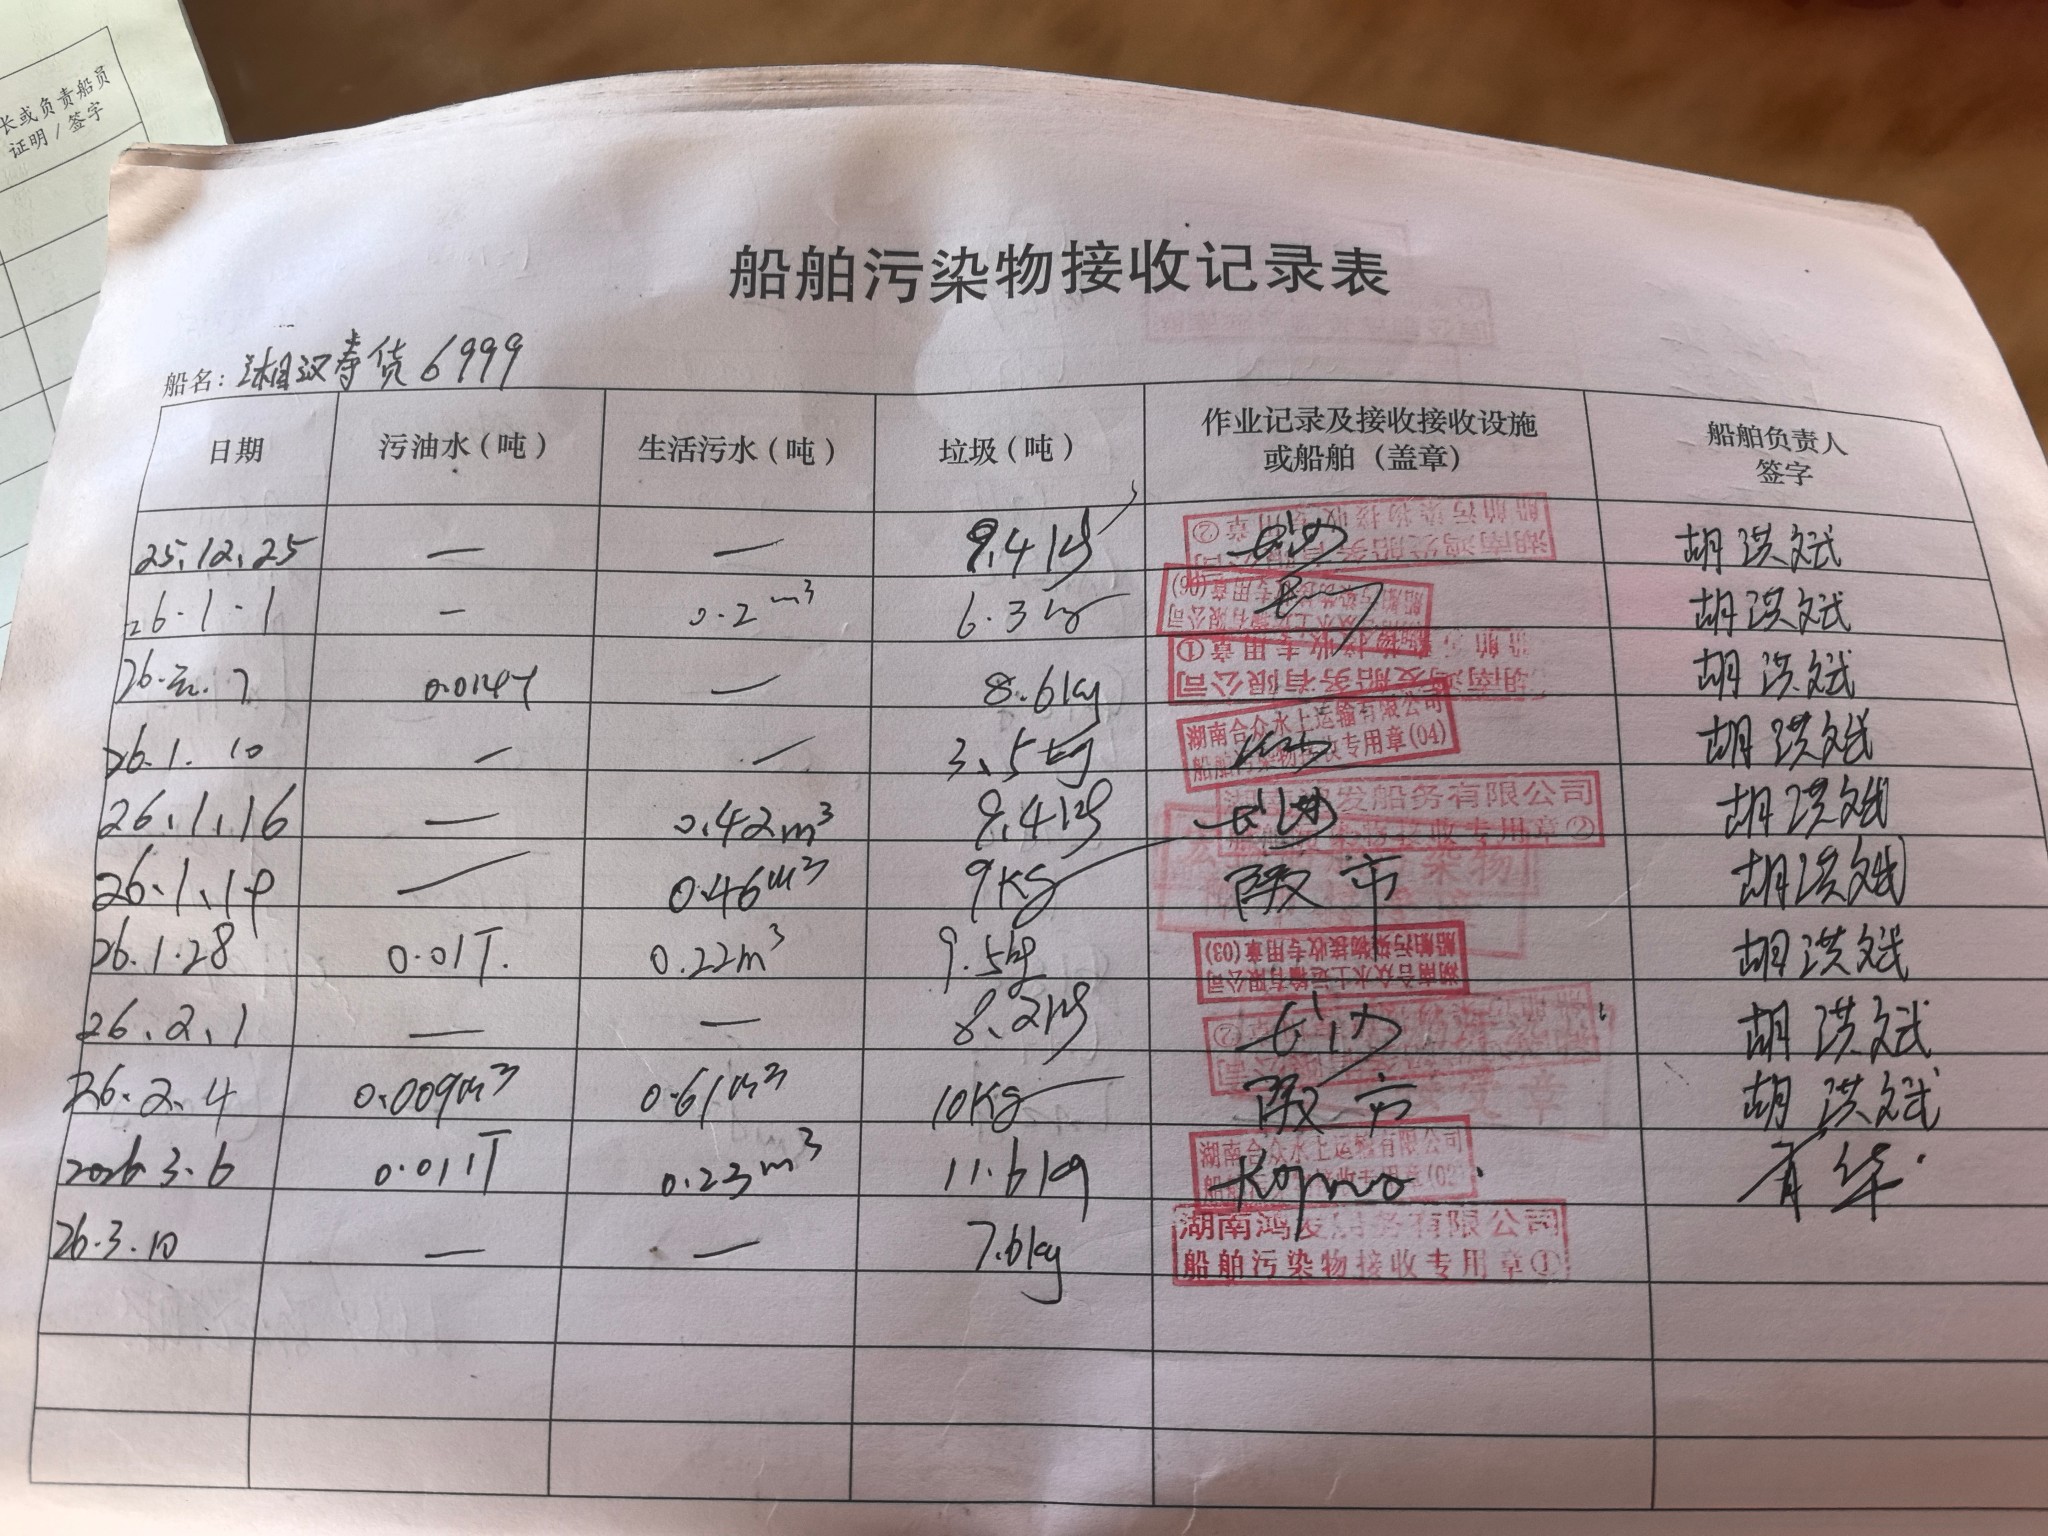 长或负责船员
证明/签字
船舶污染物接收记录表
船名: 湘汉寿货6999
日期 污油水(吨) 生活污水(吨) 垃圾(吨) 作业记录及接收接收设施 船舶负责人
或船舶(盖章) 签字
25.12.25 — — 9.4kg 长沙 胡洪斌
湖南鸿发船务有限公司
船舶污染物接收专用章②
26.1.1 — 0.2m³ 6.3kg 胡洪斌
船舶污染物接收专用章(06)
26.元.7 — 8.6kg 胡洪斌
湖南鸿发船务有限公司
船舶污染物接收专用章①
26.1.10 — — 3.5kg 胡洪斌
湖南合众水上运输有限公司
船舶污染物接收专用章(04)
26.1.16 — 0.42m³ 9.4kg 长沙 胡洪斌
湖南鸿发船务有限公司
船舶污染物接收专用章②
26.1.19 — 0.46m³ 9KG 市 胡洪斌
26.1.28 0.01T. 0.22m³ 9.5kg 胡洪斌
湖南合众水上运输有限公司
船舶污染物接收专用章(03)
26.2.1 — — 8.2kg 长沙 胡洪斌
26.2.4 0.009m³ 0.61m³ 10KG 市 胡洪斌
2026.3.6 0.011T 0.23m³ 11.6kg 华
湖南合众水上运输有限公司
船舶污染物接收专用章(02)
26.3.10 — — 7.6kg
湖南鸿发船务有限公司
船舶污染物接收专用章①